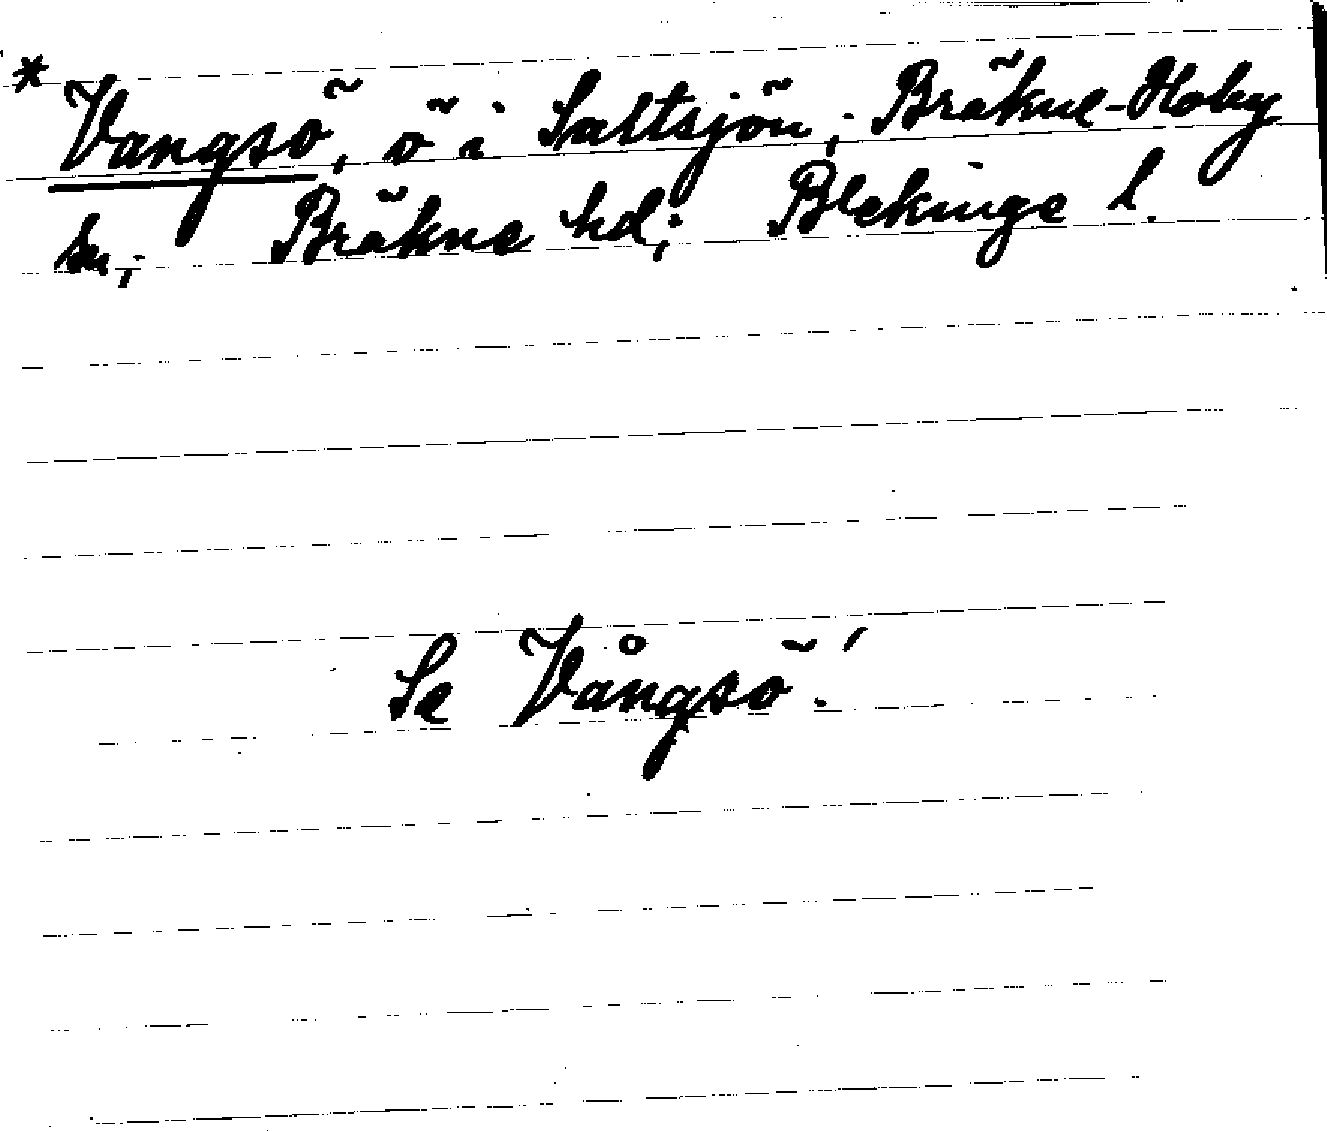 * Vangsö, ö i Saltsjön; Bräkne-Hoby
sn; Bräkne hd; Blekinge l.
Se Vångsö!